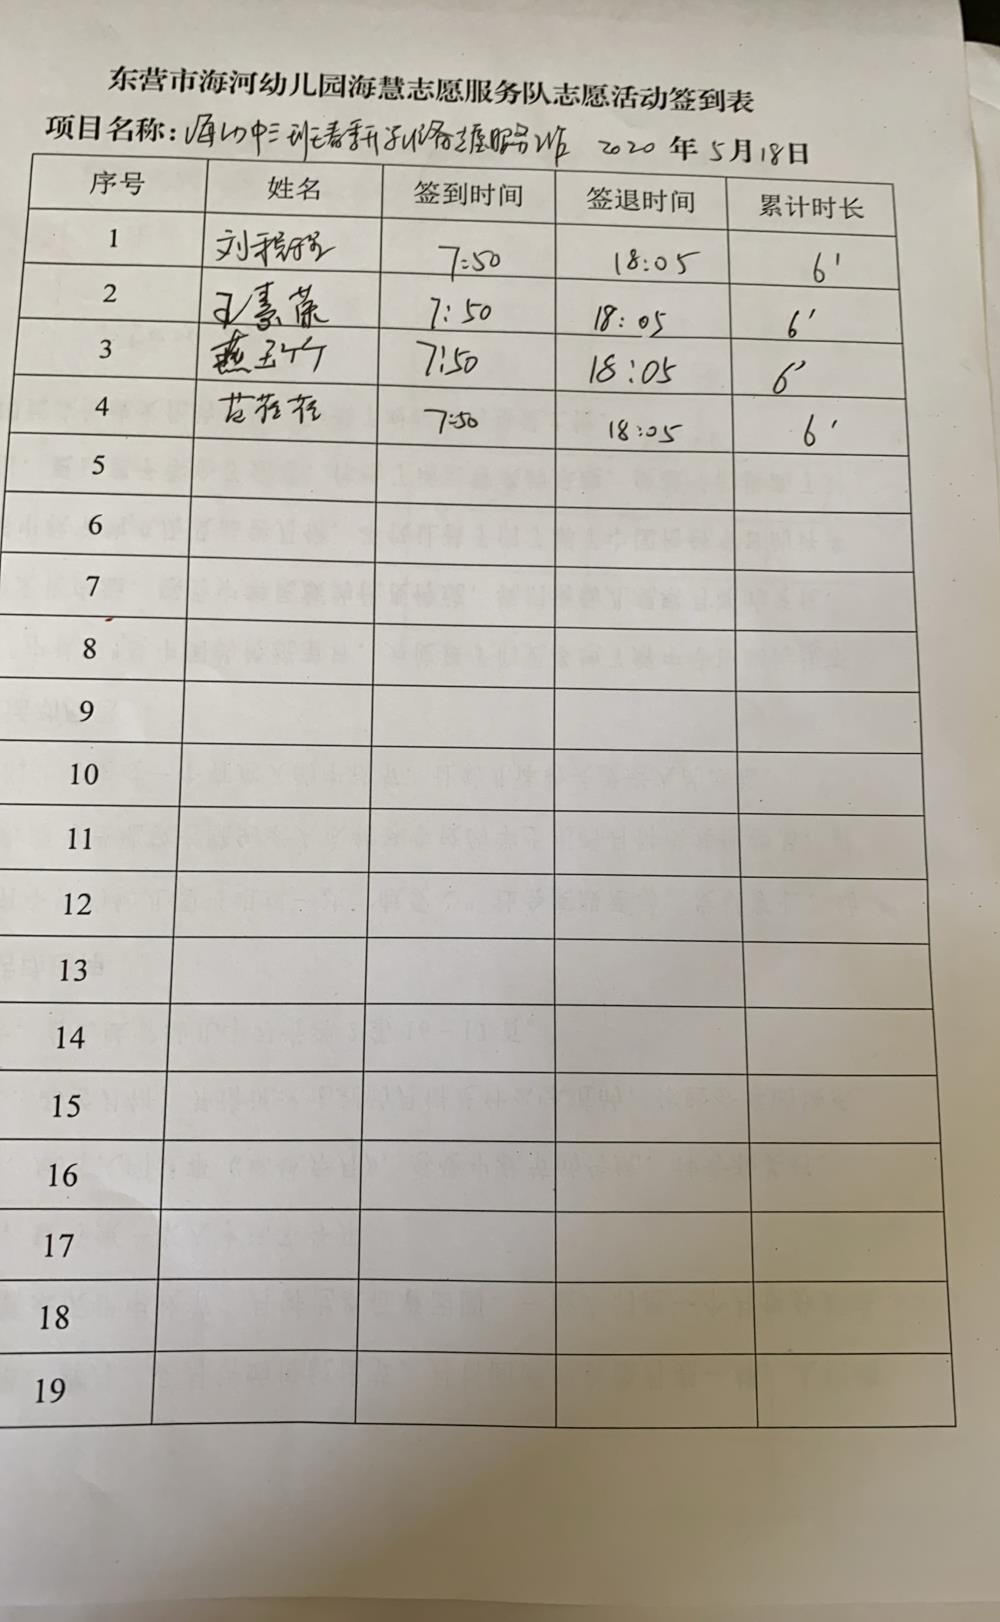 东营市海河幼儿园海慧志愿服务队志愿活动签到表
项目名称:海幼中三班春季开学准备志愿服务活动 2020年5月18日
序号 姓名 签到时间 签退时间 累计时长
1 刘 7:50 18:05 6'
2 孔素荣 7:50 18:05 6'
3 燕玉竹 7:50 18:05 6'
4 苗蓓蓓 7:50 18:05 6'
5
6
7
8
9
10
11
12
13
14
15
16
17
18
19